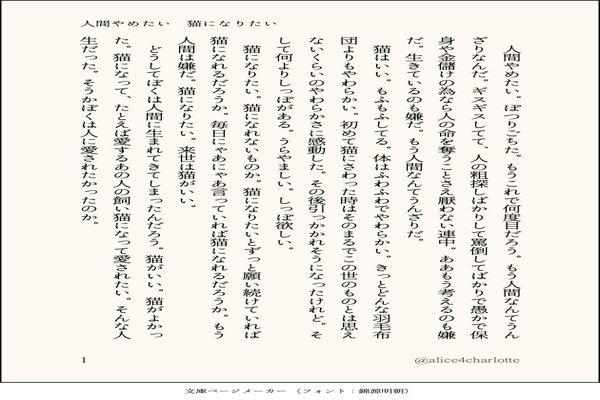 人間やめたい 猫になりたい
　人間やめたい。ぽつりごちた。もうこれで何度目だろう。もう人間なんてうん
ざりなんだ。ギスギスしてて、人の粗探しばかりして罵倒してばかりで愚かで保
身や金儲けの為なら人の命を奪うことさえ厭わない連中。ああもう考えるのも嫌
だ。生きているのも嫌だ。もう人間なんてうんざりだ。
　猫はいい。もふもふしてる。体はふわふわでやわらかい。きっとどんな羽毛布
団よりもやわらかい。初めて猫にさわった時はそのまるでこの世のものとは思え
ないくらいのやわらかさに感動した。その後引っかかれそうになったけれど。そ
して何よりしっぽがある。うらやましい。しっぽ欲しい。
　猫になりたい。猫になれないものか。猫になりたいとずっと願い続けていれば
猫になれるだろうか。毎日にゃあにゃあ言っていれば猫になれるだろうか。もう
人間は嫌だ。猫になりたい。来世は猫がいい。
　どうしてぼくは人間に生まれてきてしまったんだろう。猫がいい。猫がよかっ
た。猫になって、たとえば愛するあの人の飼い猫になって愛されたい。そんな人
生だった。そうかぼくは人に愛されたかったのか。
1
@alice4charlotte
文庫ページメーカー （フォント：錦源明朝）